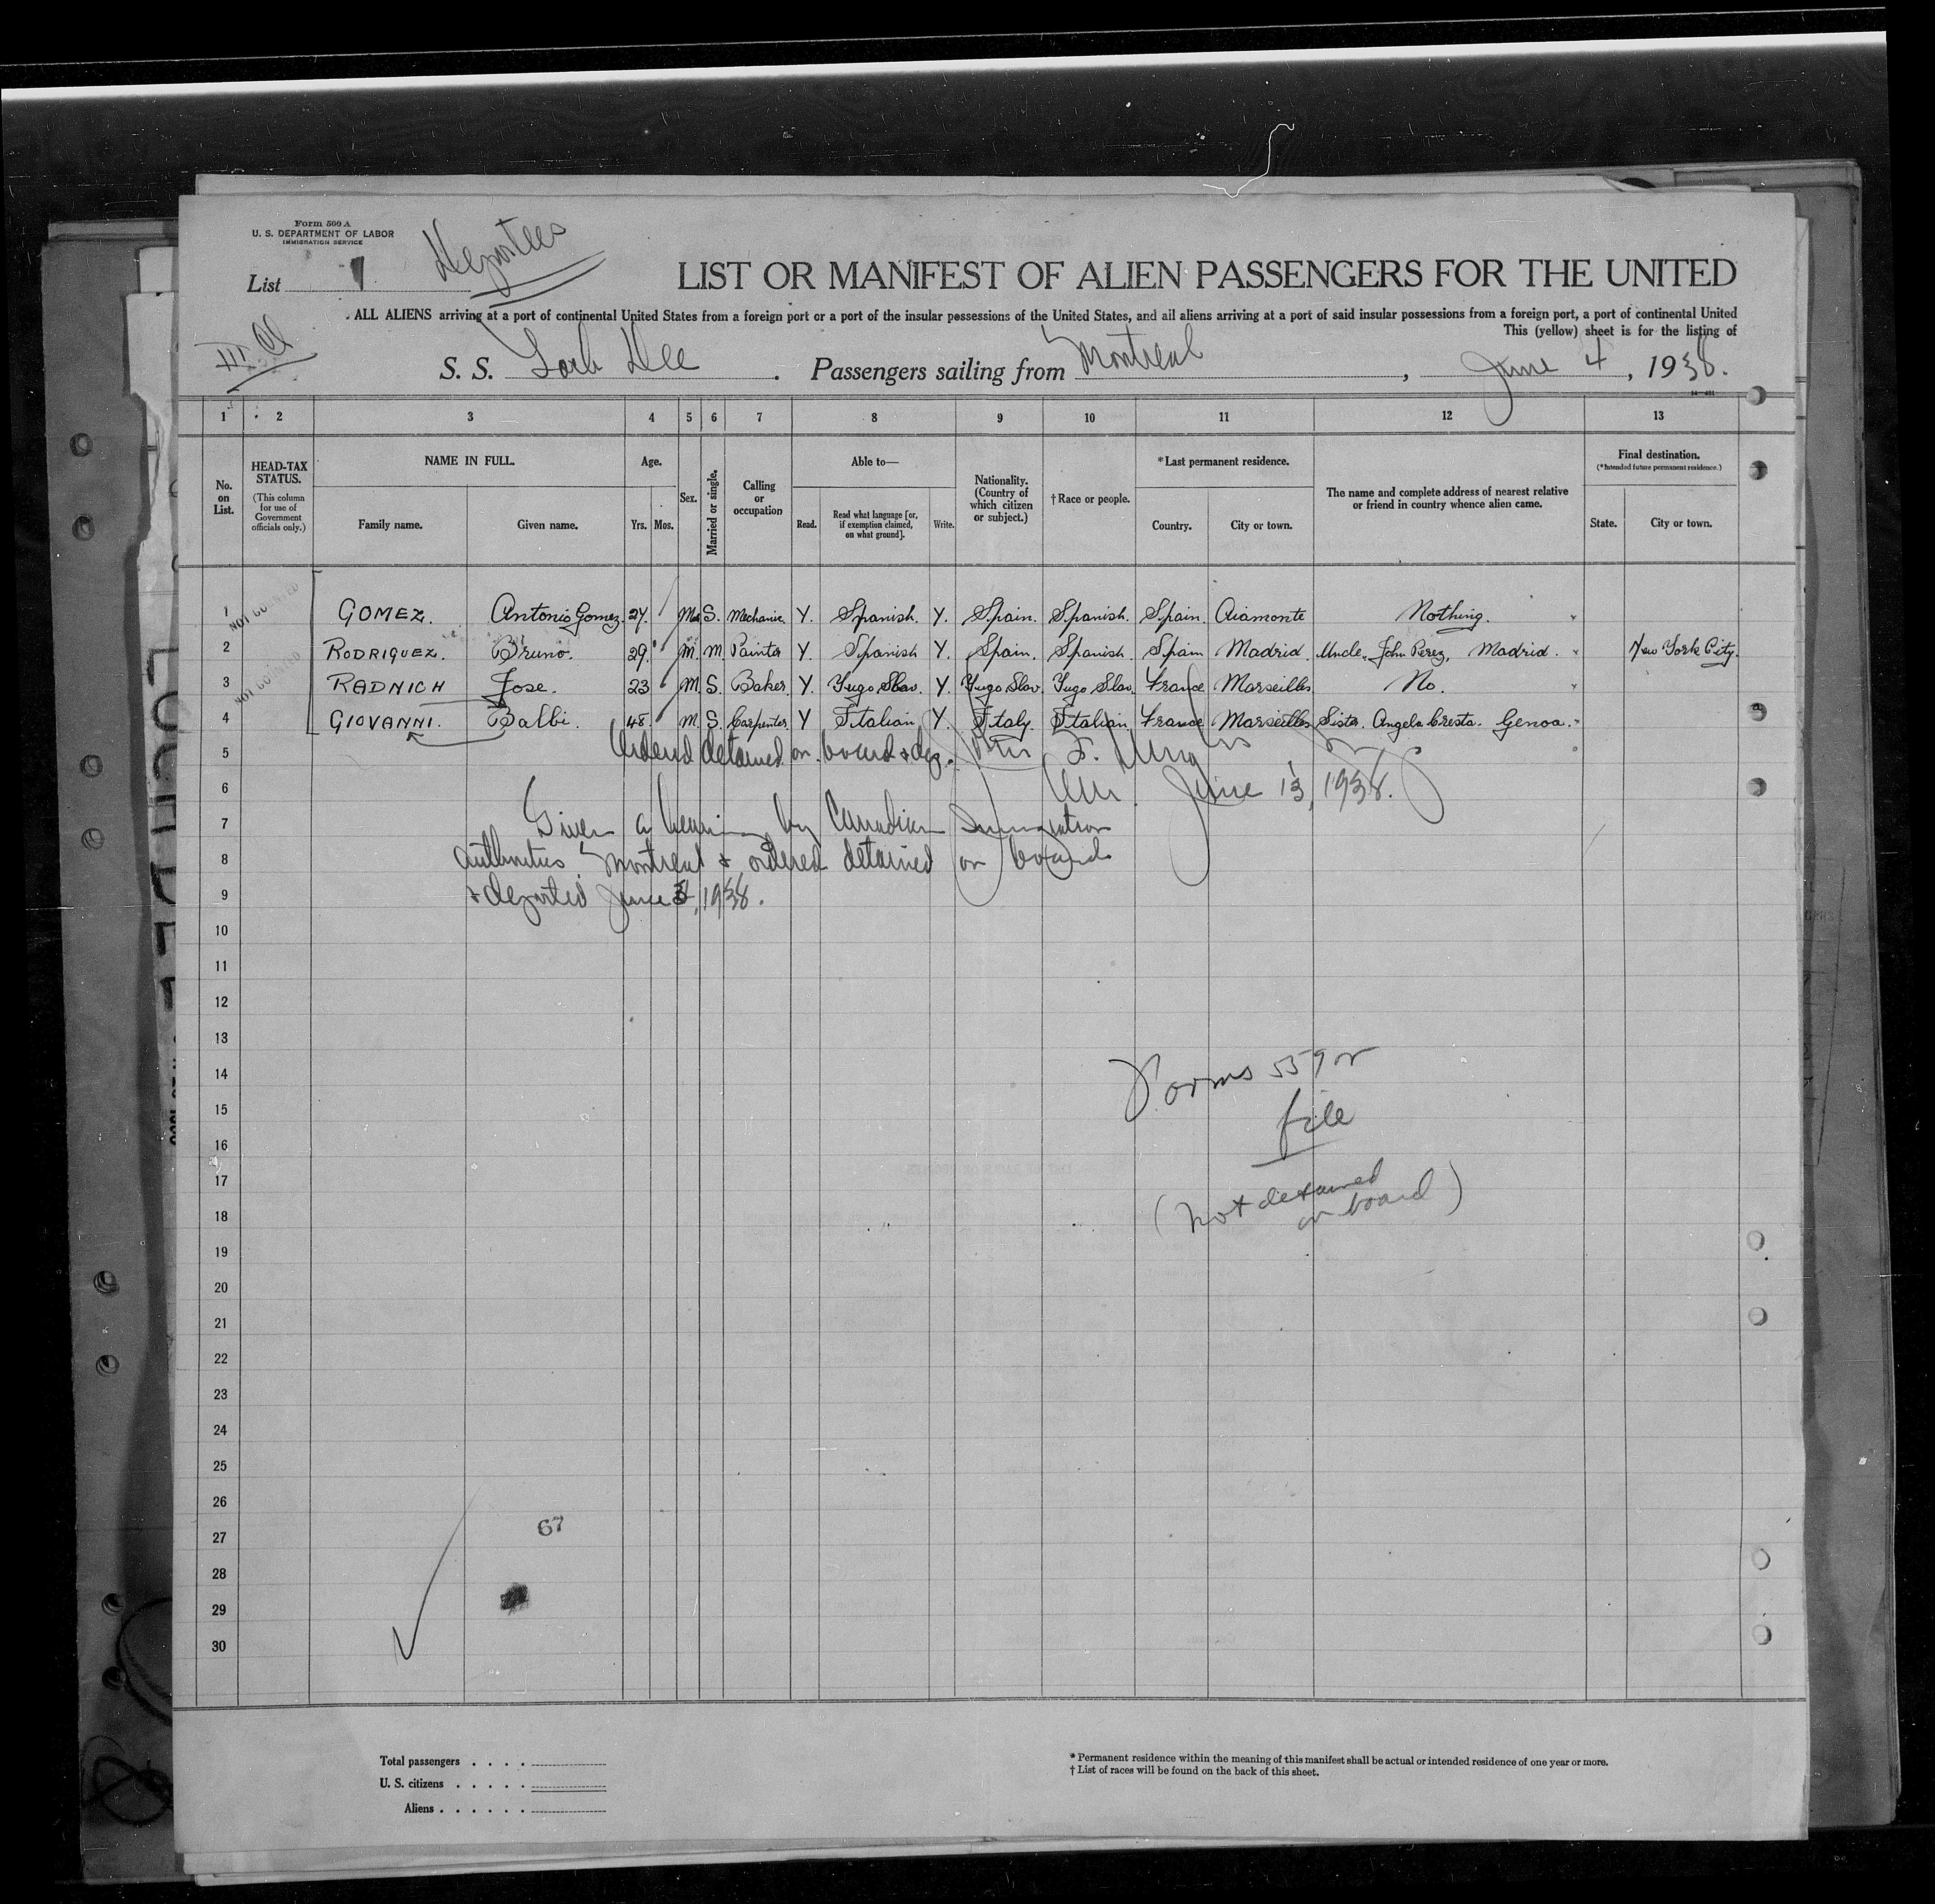 Form 500 A
U. S. DEPARTMENT OF LABOR
IMMIGRATION SERVICE
List 1 Deportees
LIST OR MANIFEST OF ALIEN PASSENGERS FOR THE UNITED
ALL ALIENS arriving at a port of continental United States from a foreign port or a port of the insular possessions of the United States, and all aliens arriving at a port of said insular possessions from a foreign port, a port of continental United
This (yellow) sheet is for the listing of
III Cl
S. S. Dee . Passengers sailing from Montreal , June 4 , 1938.
1 2 3 4 5 6 7 8 9 10 11 12 13
No. on List.
HEAD-TAX STATUS.
(This column for use of Government officials only.)
NAME IN FULL.
Family name. Given name.
Age.
Yrs. Mos.
Sex.
Married or single.
Calling or occupation
Able to—
Read. Read what language [or, if exemption claimed, on what ground]. Write.
Nationality. (Country of which citizen or subject.)
†Race or people.
*Last permanent residence.
Country. City or town.
The name and complete address of nearest relative or friend in country whence alien came.
Final destination.
(*Intended future permanent residence.)
State. City or town.
1 GOMEZ. Antonio Gomez. 27. M. S. Mechanic Y. Spanish. Y. Spain. Spanish. Spain. Aiamonte Nothing.
2 RODRIGUEZ. Bruno. 29. M. M. Painter Y. Spanish Y. Spain. Spanish. Spain Madrid. Uncle, John Perez, Madrid. New York City.
3 RADNICH Jose. 23 M. S. Baker. Y. Yugo Slav. Y. Yugo Slav. Yugo Slav. France Marseilles No.
4 GIOVANNI. Balbi. 48. M. S. Carpenter Y Italian Y. Italy. Italian. France Marseilles Sister. Angela Cresta. Genoa.
5 Ordered detained on board & dep.
6 June 13, 1938.
7 Given a hearing by Canadian Immigration
8 authorities Montreal & ordered detained on board
9 & deported June 3, 1938.
10
11
12
13
14 Forms 559 or
15 file
16
17 (not detained
18 on board)
19
20
21
22
23
24
25
26
27 67
28
29
30
Total passengers . . . .
U. S. citizens . . . . .
Aliens . . . . . .
* Permanent residence within the meaning of this manifest shall be actual or intended residence of one year or more.
† List of races will be found on the back of this sheet.